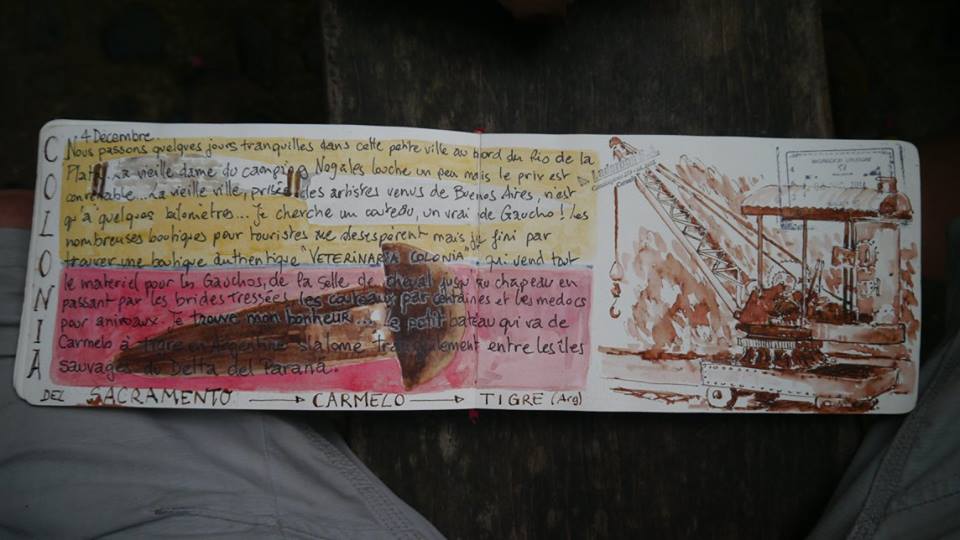 COLONIA
4 Décembre
Nous passons quelques jours tranquilles dans cette petite ville au bord du Rio de la
Plata... La vieille dame du camping Nogales louche un peu mais le prix est
convenable... La vieille ville, prisée des artistes venus de Buenos Aires, n'est
qu'à quelques kilomètres... Je cherche un couteau, un vrai de Gaucho ! Les
nombreuses boutiques pour touristes me desesperent mais je fini par
trouver une boutique authentique "VETERINARIA COLONIA" qui vend tout
le materiel pour les Gauchos, de la selle de cheval jusqu'au chapeau en
passant par les brides tressées, les couteaux par centaines et les medocs
pour animaux. Je trouve mon bonheur... Le petit bateau qui va de
Carmelo à Tigre en Argentine slalome tranquillement entre les îles
sauvages du Delta del Parana.
DEL SACRAMENTO → CARMELO → TIGRE (Arg)